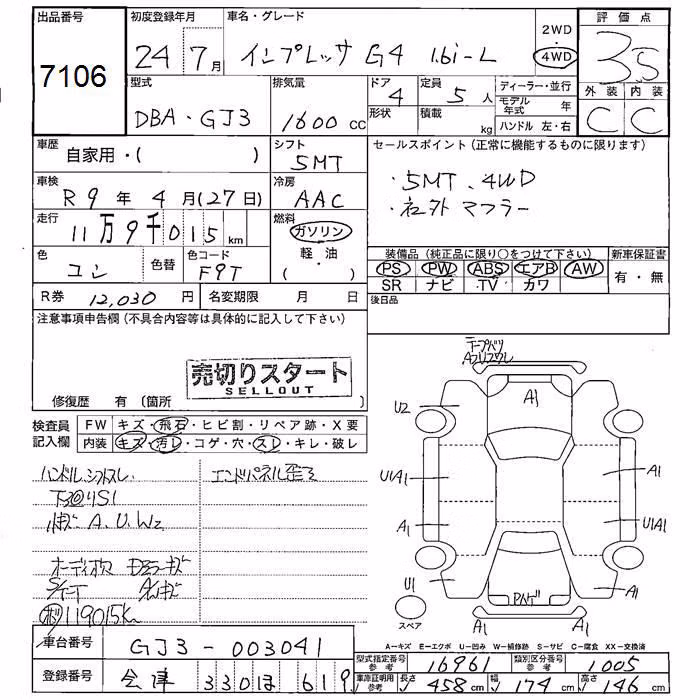 出品番号
7106
初度登録年月
24 7月
車名・グレード
インプレッサ G4 1.6i-L
2WD
・
4WD
評価点
3.5
外装 内装
C C
型式
DBA・GJ3
排気量
1600 cc
ドア
4
形状
定員
5 人
積載
kg
ディーラー・並行
モデル年式 年
ハンドル 左・右
車歴
自家用・( )
シフト
5MT
セールスポイント (正常に機能するものに限ります)
・5MT、4WD
・社外マフラー
車検
R9年 4月(27日)
冷房
AAC
走行
11万9千015 km
燃料
ガソリン
軽・油
( )
色
コン
色替
色コード
F9T
装備品 (純正品に限り○をつけて下さい)
PS PW ABS エアB AW
SR ナビ TV カワ
新車保証書
有・無
R券 12,030 円
名変期限 月 日
後日品
注意事項申告欄 (不具合内容等は具体的に記入して下さい)
売切りスタート
SELLOUT
修復歴 有 (箇所 )
検査員記入欄
FW キズ・飛石・ヒビ割・リペア跡・X要
内装 キズ・汚レ・コゲ・穴・スレ・キレ・破レ
ハンドル、シフトスレ
下廻りS1
A、U、W2
エンドパネル歪ミ
オーディオ欠
シート
119015K
A1
U2
U1A1
A1
A1
U1A1
U1
A1
A1
スペア
A-キズ E-エクボ U-凹み W-補修跡 S-サビ C-腐食 XX-交換済
車台番号
GJ3-003041
登録番号
会津 330 ほ 619
型式指定番号 参考 16961
類別区分番号 参考 1005
車庫証明用 参考
長さ 458cm
幅 174cm
高さ 146cm